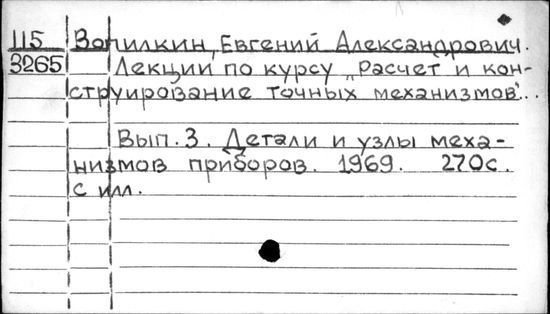 115 Вопилкин, Евгений Александрович.
3265 Лекции по курсу „Расчет и кон-
струирование точных механизмов"...
Вып. 3. Детали и узлы меха-
низмов приборов. 1969. 270с.
с илл.